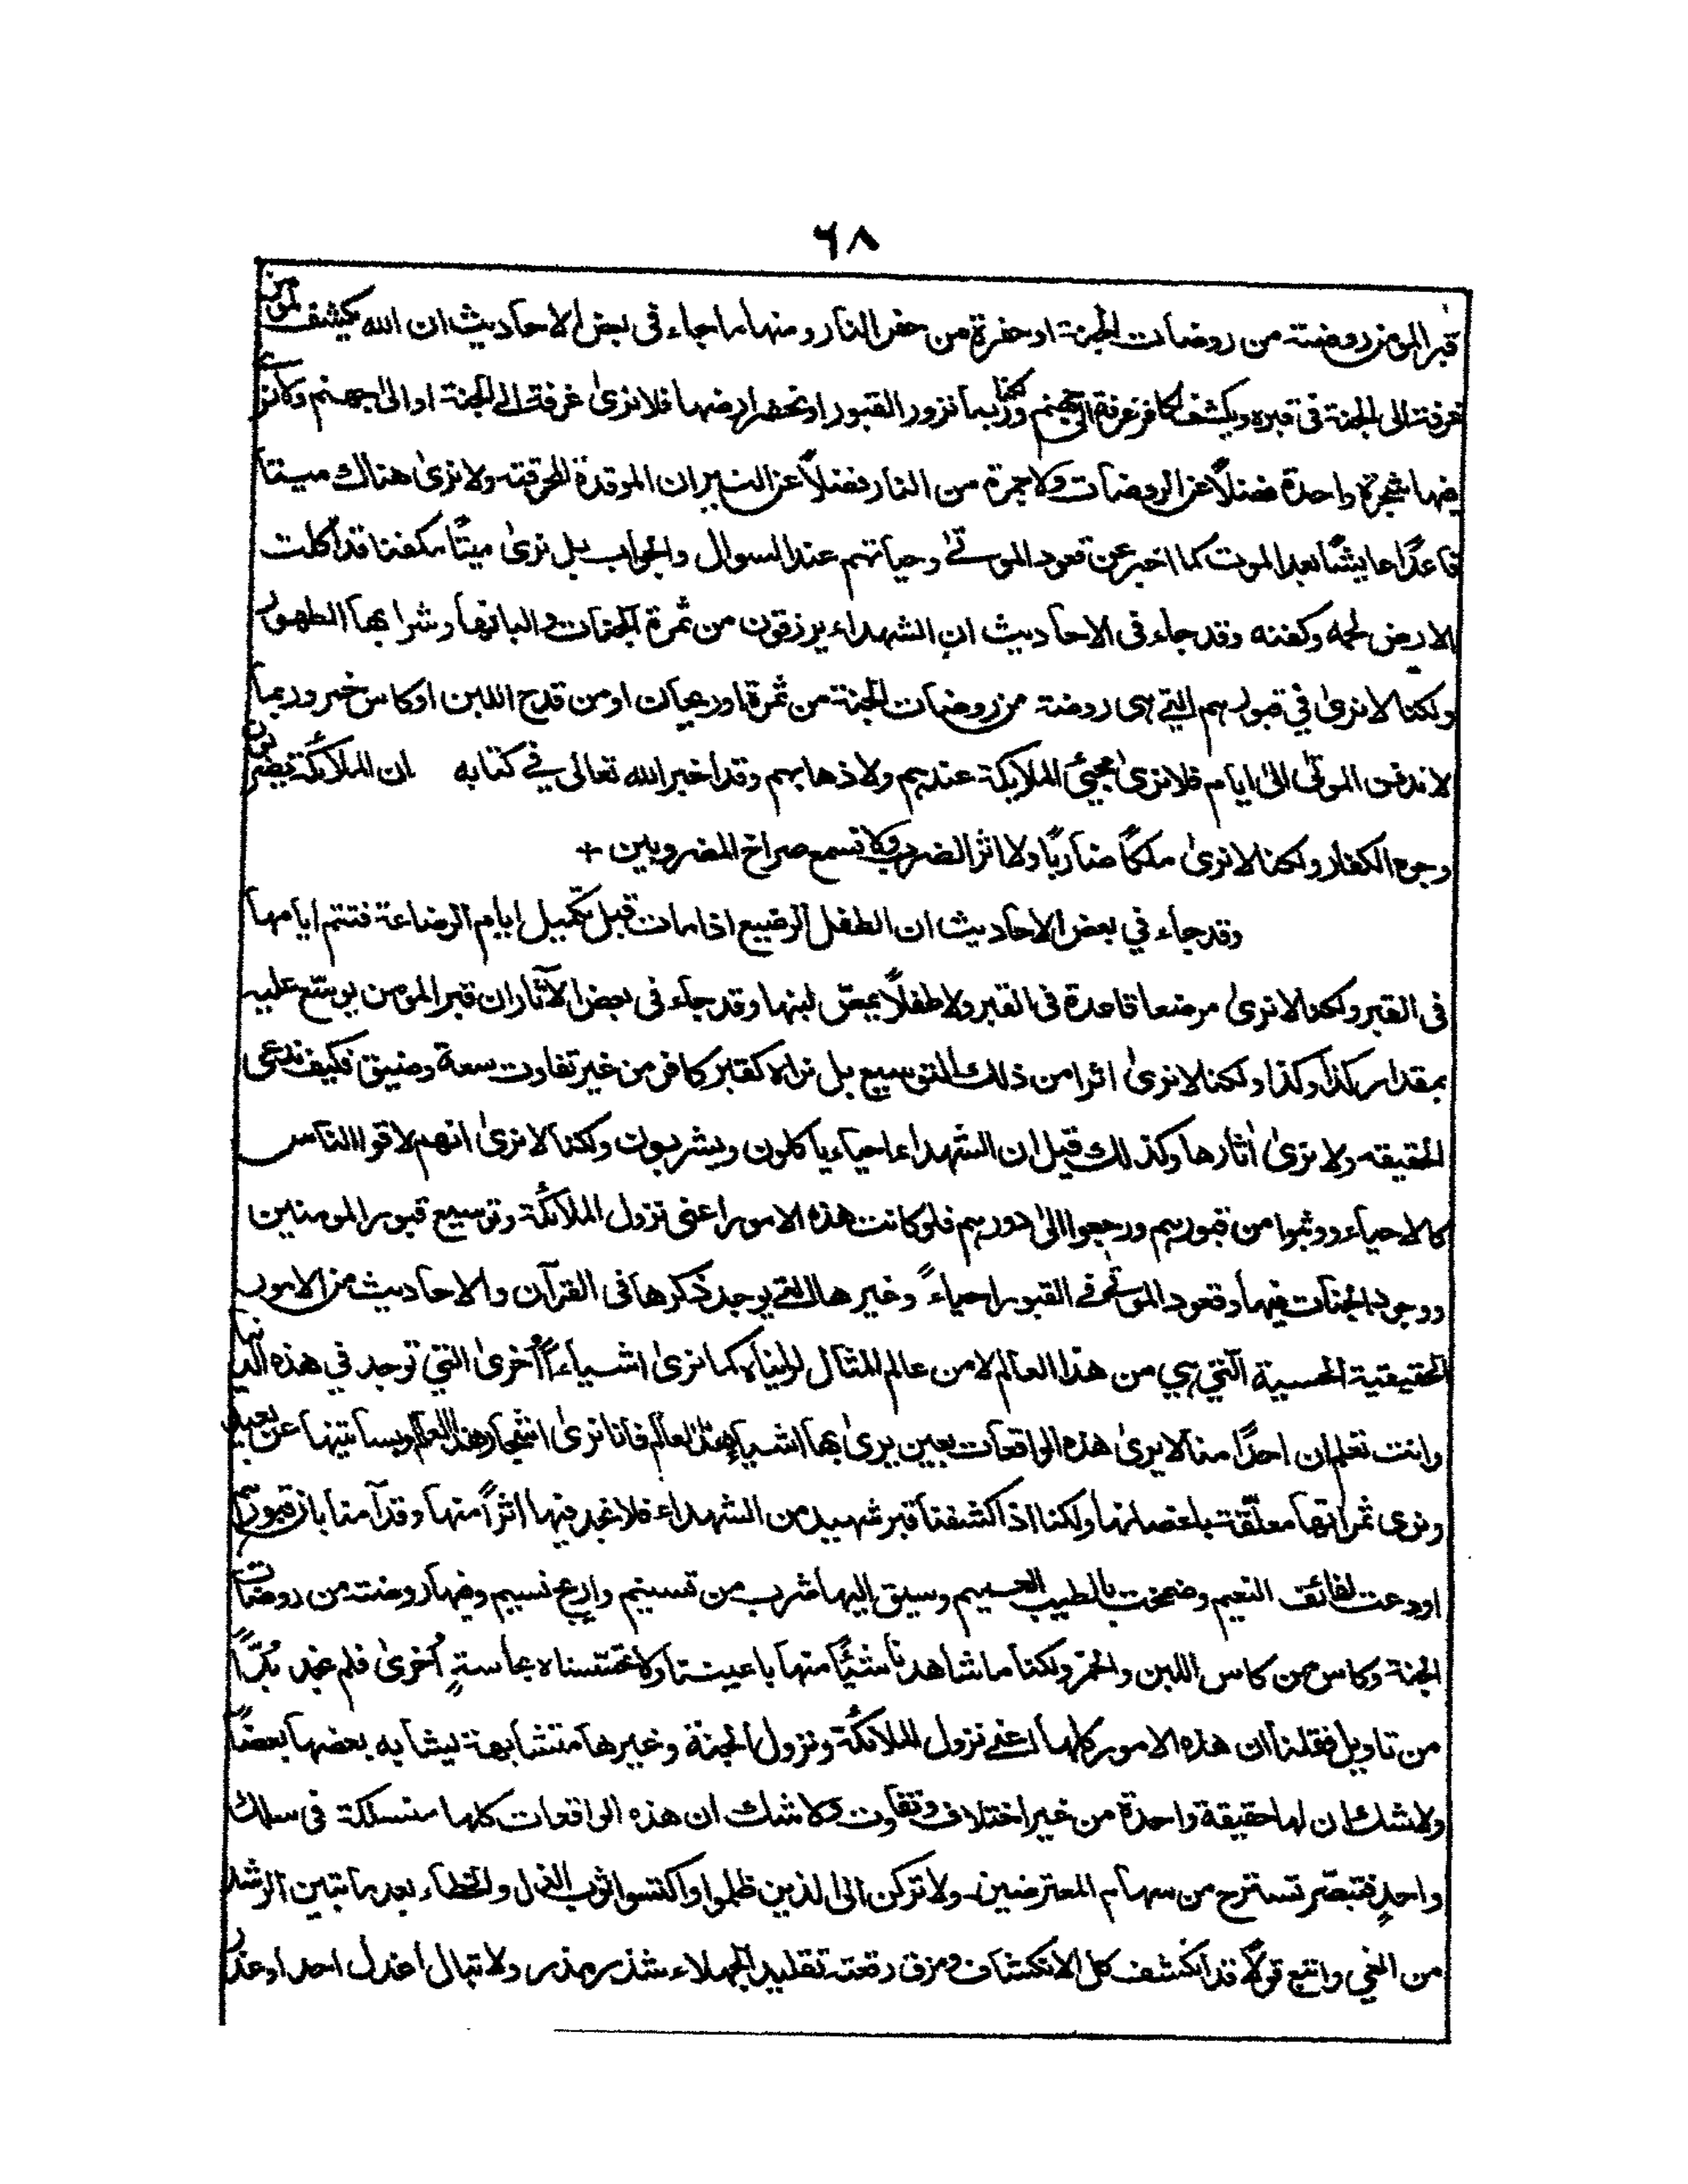 ٦٨
قبر المومن روضة من روضات الجنة او حفرة من حفر النار ومنها ما جاء فى بعض الاحاديث ان الله يكشف لمومن
غرفة الى الجنة فى قبره ويكشف لكافر غرفة الى جهنم ولكنا ربما نزور القبور او نحفر ارضها فلا نرىٰ غرفة الى الجنة او الى جهنم ولا نرىٰ
فيها شجرة واحدة فضلًا عن الروضات ولا جمرة من النار فضلًا عن النيران الموقدة المحرقة ولا نرىٰ هناك ميتا
قاعدًا عايشًا بعد الموت كما اخبر عن قعود الموتىٰ وحياتهم عند السوال والجواب بل نرىٰ ميتًا مكفنا قد اكلت
الارض لحمه وكفنه وقد جاء فى الاحاديث ان الشهداء يرزقون من ثمرة الجنات والبانها وشرابها الطهور
ولكنا لا نرىٰ في قبورهم التي هى روضة من روضات الجنة من ثمرة او ريحان او من قدح اللبن او كاس خمر وربما
لا ندفن الموتى الىٰ ايام فلا نرىٰ مجيئ الملايكة عندهم ولا ذهابهم وقد اخبر الله تعالى في كتابه ان الملائكة يضربون
وجوه الكفار ولكنا لا نرىٰ ملكًا ضاربًا ولا اثر الضرب ولا نسمع صراخ المضروبين +
وقد جاء في بعض الاحاديث ان الطفل الرضيع اذا مات قبل تكميل ايام الرضاعة فتتم ايامها
فى القبر ولكنا لا نرىٰ مرضعا قاعدة فى القبر ولا طفلًا يمصّ لبنها وقد جاء فى بعض الآثار ان قبر المومن يوسّع عليه
بمقدار كذا وكذا ولكنا لا نرىٰ اثرا من ذلك التوسيع بل نراه كقبر كافر من غير تفاوت سعة وضيق فكيف ندعى
الحقيقه ولا نرىٰ اٰثارها وكذلك قيل ان الشهداء احياء ياكلون ويشربون ولكنا لا نرىٰ انهم لاقوا الناس
كالاحياء ووثبوا من قبورهم ورجعوا الىٰ دورهم فلو كانت هذه الامور اعنى نزول الملائكة وتوسيع قبور المومنين
ووجود الجنات فيها وقعود الموتىٰ فے القبور احياءً وغيرها التے يوجد ذكرها فى القرآن والاحاديث من الامور
الحقيقية الحسية التي هي من هذا العالم لا من عالم المثال لرايناه كما نرىٰ اشياءً اُخرىٰ التي توجد في هذه الدنيا
وانت تعلم ان احدًا منا لا يرىٰ هذه الواقعات بعين يرىٰ بها اشياء هذا العالم فانا نرىٰ اشجار هذا العالم وبساتينها عن بعيد
ونرى ثمراتها معلّقة باغصانها ولكنا اذا كشفنا قبر شهيد من الشهداء فلا نجد فيها اثرًا منها وقد آمنا بان قبورهم
اودعت لفائف النعيم وضمخت بالطيب العميم وسيق اليها شرب من تسنيم واريج نسيم وفيها روضة من روضات
الجنة وكاس من كاس اللبن والخمر ولكنا ما شاهدنا شيئًا منها باعيننا ولا تحسسناه بحاسةٍ اُخرىٰ فلم نجد بُدًّا
من تاويل فقلنا ان هذه الامور كلها اعنے نزول الملائكة ونزول الجنة وغيرها متشابهة يشابه بعضها بعضًا
ولا شك ان لها حقيقة واحدة من غير اختلاف وتفاوت ولا شك ان هذه الواقعات كلها منسلكة فى سلك
واحدٍ فتبصّر تسترح من سهام المعترضين ولا تركن الى الذين ظلموا واكتسوا ثوب الذل والخطاء بعد ما تبين الرشد
من الغي واتبع قولًا قد انكشف كل الانكشاف ومزق رقعة تقليد الجهلاء شذر مذر ولا تبال اعذل احد او عذر